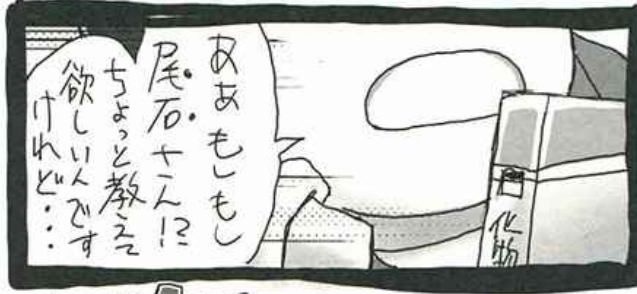 ああもしもし
尾石さん!?
ちょっと教えて
欲しいんです
けれど・・・
化物